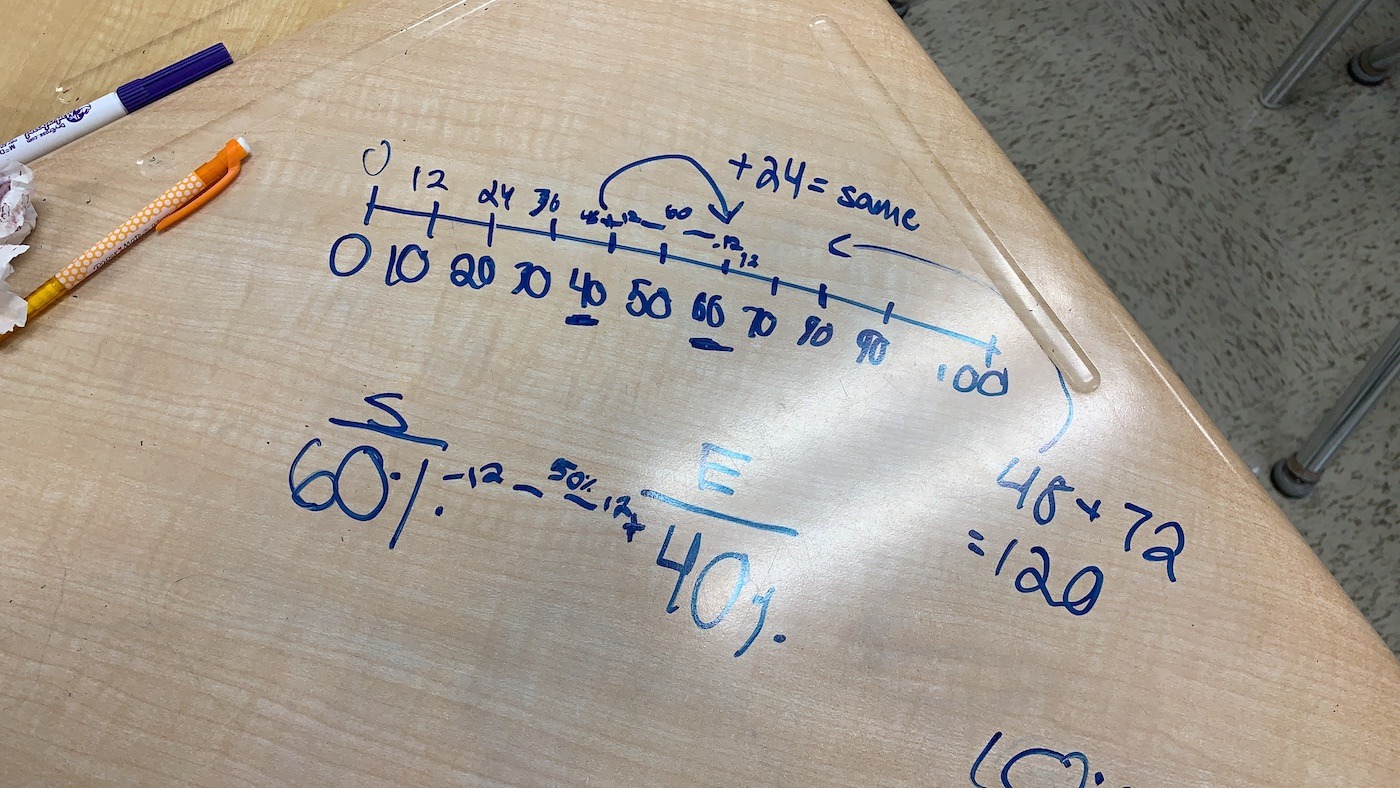 +24 = same
0 12 24 36 48 +12 60 -12
12
0 10 20 30 40 50 60 70 80 90 100
S
60% -12 50% 12+
E
40%
48 + 72
= 120